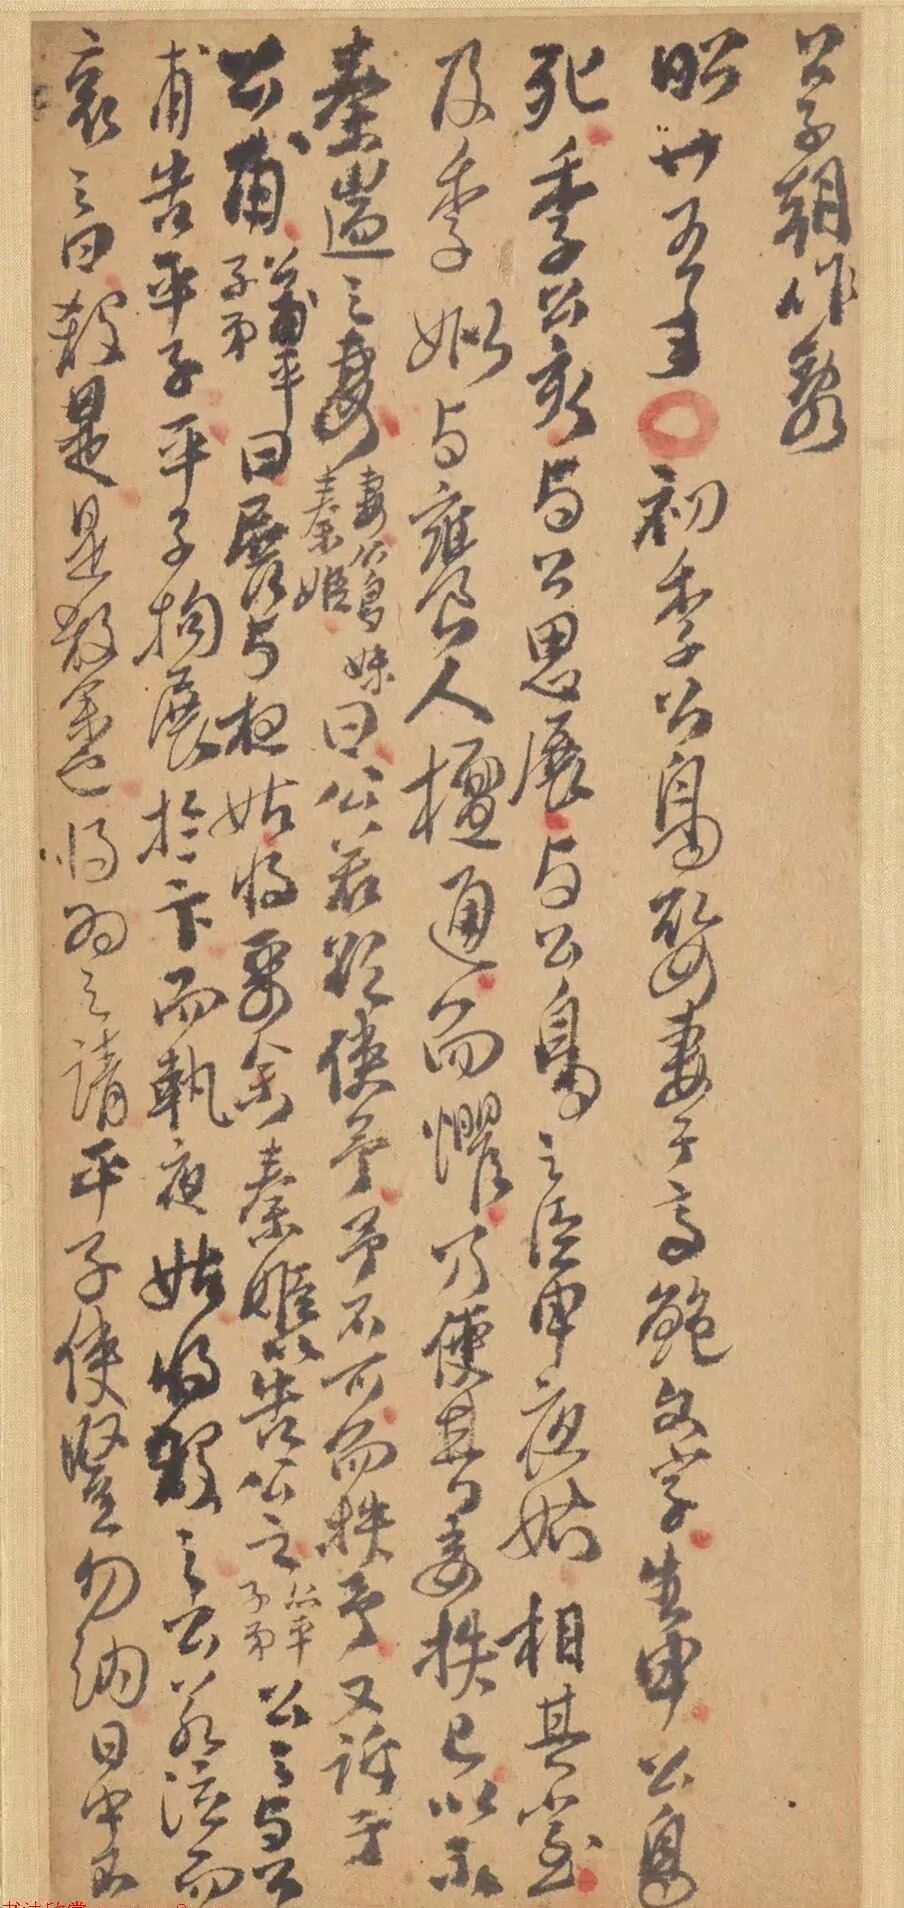 公子朝作亂
昭廿五年初季公鳥娶妻于齊鮑文子生甲公鳥
死季公亥与公思展与公鳥之臣申夜姑相其室
及季姒与饔人檀通而懼乃使其妾抶己以示
秦遄之妻妻公鳥妹秦姬曰公若欲使予予不可而抶予又訴于
公甫公甫平子弟曰展与夜姑將要余秦姬以告公之公之平子弟公之与公
甫告平子平子拘展於卞而執夜姑將殺之公若泣而
哀之曰殺是是殺余也將為之請平子使豎勿納日中不